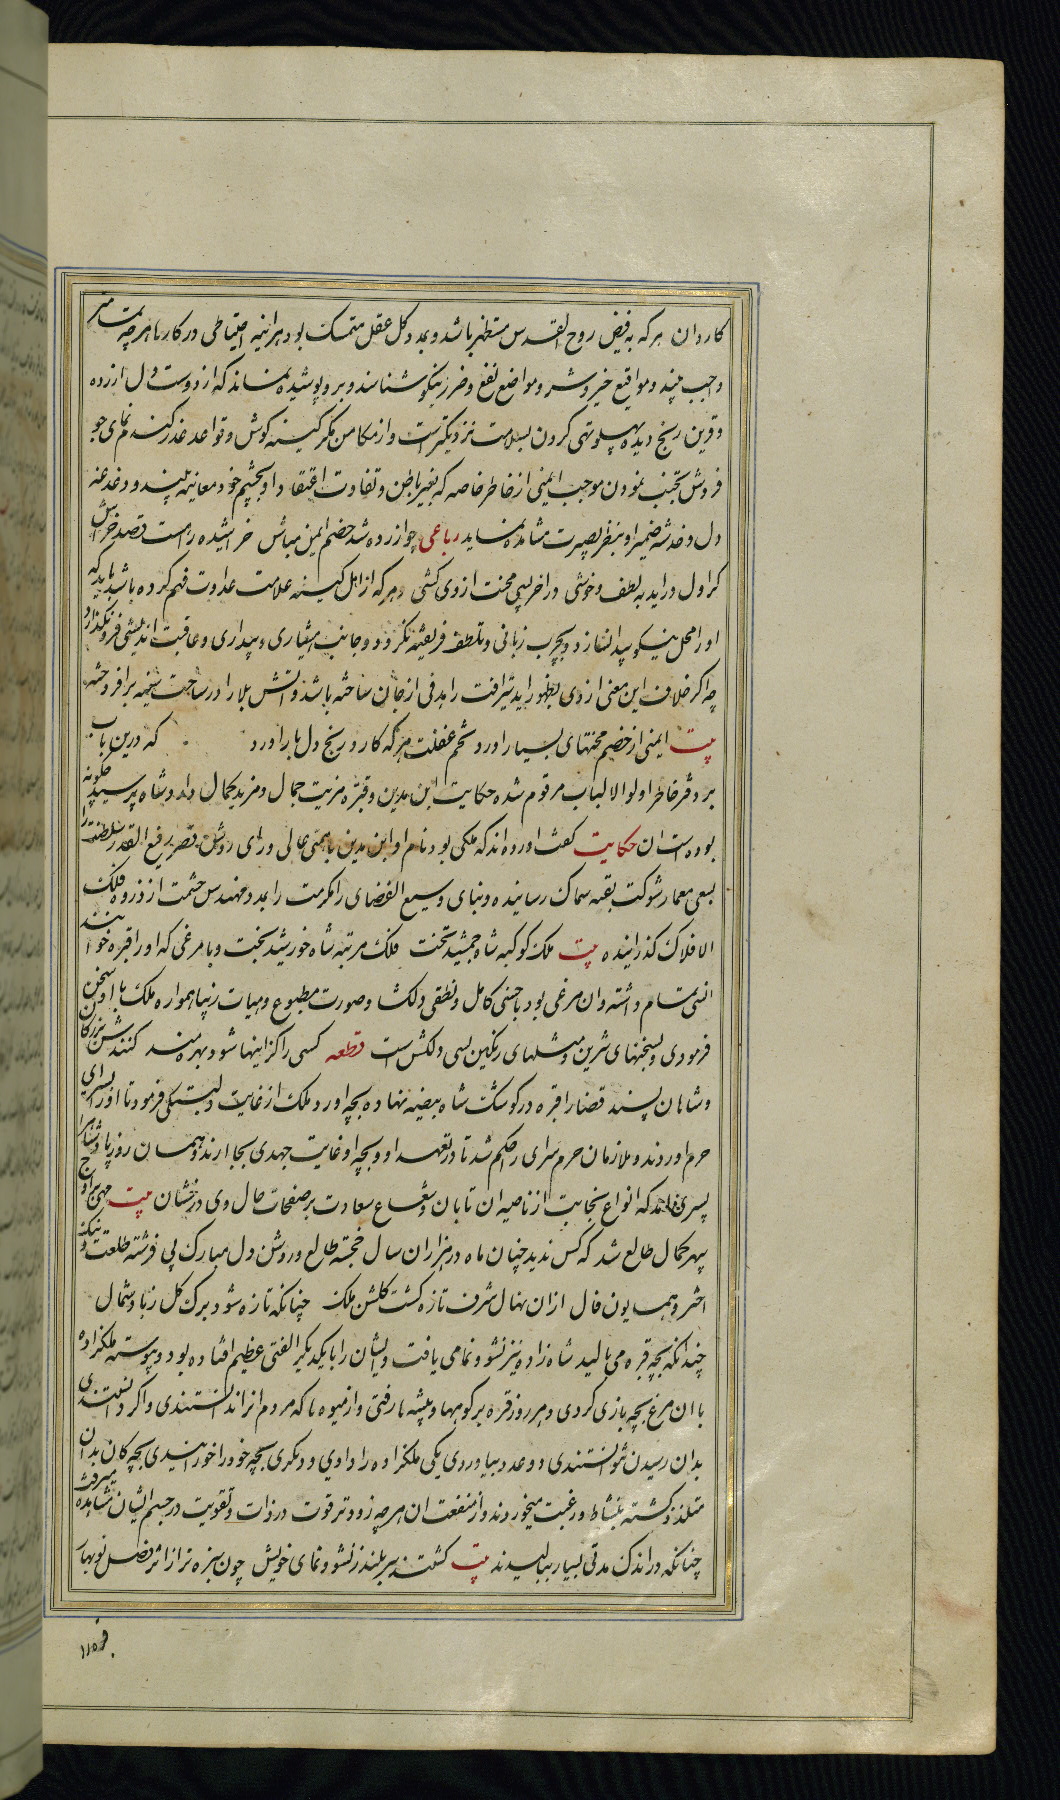 کاردان هرکه به فیض روح القدس مستظهر باشد و بمدد کل عقل متمسک بود هراینه احتیاطی در کارها هرچه تمامتر
واجب بیند و مواقع خیر و شر و مواضع نفع و ضرر نیکو شناسد و برو پوشیده نماند که از دوست دل ازرده
و قرین رنج دیده پهلو تهی کردن بسلامت نزدیکترست و از مکامن مکر کینه کوش و قواعد غدر کندم نمای جو
فروش تجنب نمودن موجب ایمنی از خاطر خاصه که تغیر باطن و تفاوت اعتقاد او بچشم خود معاینه بیند و دغدغه
دل و خدشه ضمیر او بنظر بصیرت مشاهده نماید رباعی چو ازرده شد خصم ایمن مباش خراشیده راست قصد خراش
کر اول دراید به لطف و خوشی در اخر بسی محنت ازوی کشی و هرکه از اهل کینه علامت عداوت فهم کرده باشد باید که
او را محل نیکو پیدا نسازد و بچرب زبانی و تلطف فریفته نکردد و جانب هشیاری و بیداری و عاقبت اندیشی فرو نکذارد
چه اکر خلاف این معنی ازوی بظهور اید تیر افت را هدفی از جان ساخته باشد و اتش بلا را در ساحت سینه برافروخته
بیت ایمنی از خصم محنتهای بسیار اورد تخم غفلت هرکه کارد رنج دل بار اورد که درین باب
بر دفتر خاطر اولوالالباب مرقوم شده حکایت ابن مدین و قبره مزیت جمال و مزید کمال دارد شاه پرسید که چکونه
بوده است ان حکایت کفت اورده اند که ملکی بود نام او ابن مدین با همتی عالی و رای روشن قصر رفیع القدر سلطنت را
بسعی معمار شوکت بقمه سماک رسانیده و بنای وسیع الفضای را مکرمت را بمدد مهندس حشمت از ذروه فلک
الافلاک کذرانیده بیت ملک کوکبه شاه جمشید تخت فلک مرتبه شاه خورشید بخت و با مرغی که او را قبره خوانند
انسی تمام داشته و ان مرغی بود با حسنی کامل و نطقی دلکشا و صورت مطبوع و هیات زیبا همواره ملک با او سخن
فرمودی و بسخنهای شیرین و مثلهای رنکین بسی دلکش است قطعه کسی را کزاینها شود بهره مند کنندش بزرکان
و شاهان پسند قضا را قبره در کوشک شاه بیضه نهاده بچه اورد و ملک از غایت دلبستکی فرمود تا او را بسرای
حرم اوردند و ملازمان حرم سرای را حکم شد تا در تعهد او و بچه او غایت جهدی بجا ارند و همان روز پادشاه را
پسری امد که انواع نجابت از ناصیه ان تابان و شعاع سعادت بر صفحات حال وی درخشان بیت مهی بر اوج
سپهر کمال طالع شد که کس ندید چنان ماه در هزاران سال خجسته طالع و روشن دل مبارک پی فرشته طلعت و نیک
اختر و همایون فال ازان نهال شرف تازه کشت کلشن ملک چنانکه تازه شود برک کل ز باد شمال
چندانکه بچه قبره می بالید شاه زاده نیز نشو و نما می یافت و ایشان را با یکدیکر الفتی عظیم افتاده بود و پیوسته ملکزاده
با ان مرغ بچه بازی کردی و هر روز قبره بر کوهها و بیشه ها رفتی و از میوه ها که مردم انرا ندانستندی و اکر دانستندی
بدان رسیدن نتوانستندی دو عدد بیاوردی یکی ملکزاده را دادی و دیکری بچه خود را خورانیدی بچه کان بدان
متلذذ کشته بنشاط و رغبت میخوردند و از منفعت ان هرچه زودتر قوت در ذات و تقویت در جسم ایشان مشاهده میرفت
چنانکه در اندک مدتی بسیار ببالیدند بیت کشتند سربلند ز نشو و نمای خویش چون سبزه تر از اثر فصل نوبهار